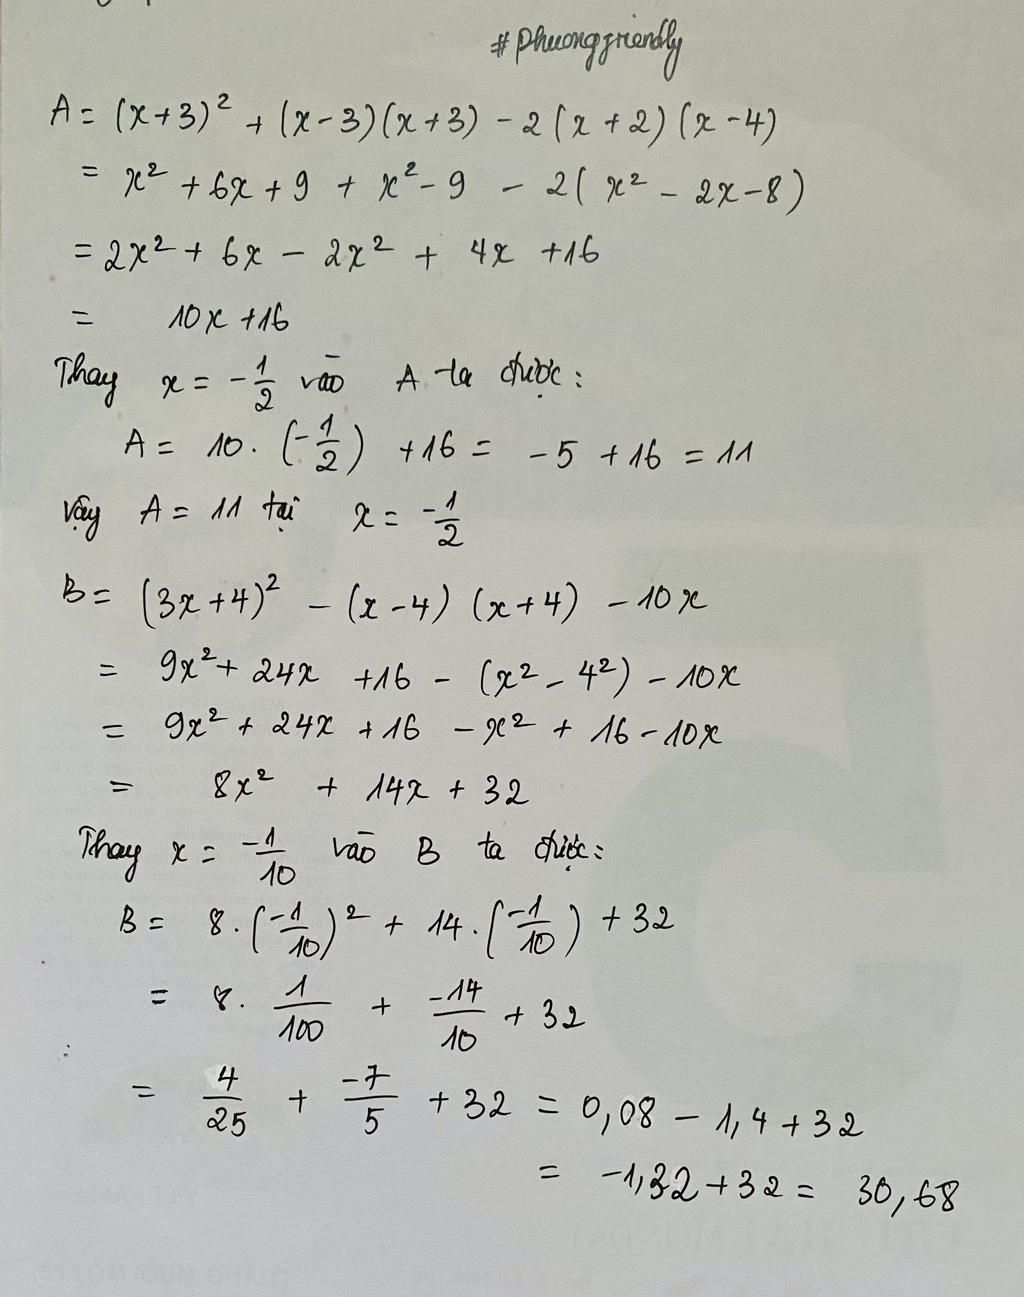 #phuongfriendly
A = (x+3)² + (x-3)(x+3) - 2(x+2)(x-4)
= x² + 6x + 9 + x² - 9 - 2(x² - 2x - 8)
= 2x² + 6x - 2x² + 4x + 16
= 10x + 16
Thay x = -1/2 vào A ta được:
A = 10. (-1/2) + 16 = -5 + 16 = 11
vậy A = 11 tại x = -1/2
B = (3x+4)² - (x-4) (x+4) - 10x
= 9x² + 24x + 16 - (x² - 4²) - 10x
= 9x² + 24x + 16 - x² + 16 - 10x
= 8x² + 14x + 32
Thay x = -1/10 vào B ta được:
B = 8. (-1/10)² + 14. (-1/10) + 32
= 8. 1/100 + -14/10 + 32
= 4/25 + -7/5 + 32 = 0,08 - 1,4 + 32
= -1,32 + 32 = 30,68